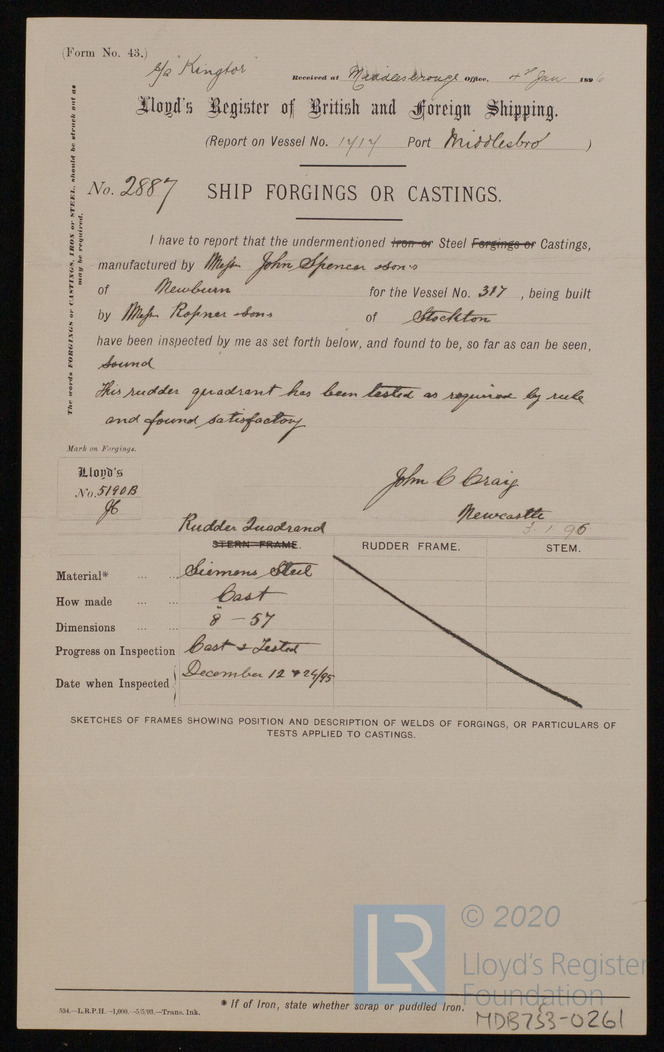 (Form No. 43.)
s/s "Kingtor"
Received at Middlesbrough Office, 4th Jan 1896
Lloyd's Register of British and Foreign Shipping.
(Report on Vessel No. 1717 Port Middlesbro')
No. 2887 SHIP FORGINGS OR CASTINGS.
The words FORGINGS or CASTINGS, IRON or STEEL, should be struck out as may be required.
I have to report that the undermentioned Iron or Steel Forgings or Castings,
manufactured by Messrs John Spencer & Sons
of Newburn for the Vessel No. 317, being built
by Messrs Ropner & Sons of Stockton
have been inspected by me as set forth below, and found to be, so far as can be seen,
sound
This rudder quadrant has been tested as required by rule
and found satisfactory
Mark on Forgings.
Lloyd's
No. 5190B
JC
John C Craig
Newcastle
3.1.96
Rudder Quadrand
STERN FRAME. RUDDER FRAME. STEM.
Material* ... ... Siemens Steel
How made ... ... Cast
Dimensions ... ... 8" - 57
Progress on Inspection Cast & Tested
Date when Inspected December 12 & 24/95
SKETCHES OF FRAMES SHOWING POSITION AND DESCRIPTION OF WELDS OF FORGINGS, OR PARTICULARS OF
TESTS APPLIED TO CASTINGS.
LR
© 2020
Lloyd's Register
Foundation
* If of Iron, state whether scrap or puddled Iron.
534.—L.R.P.H.—1,000.—5/5/93.—Trans. Ink.
MDB733-0261